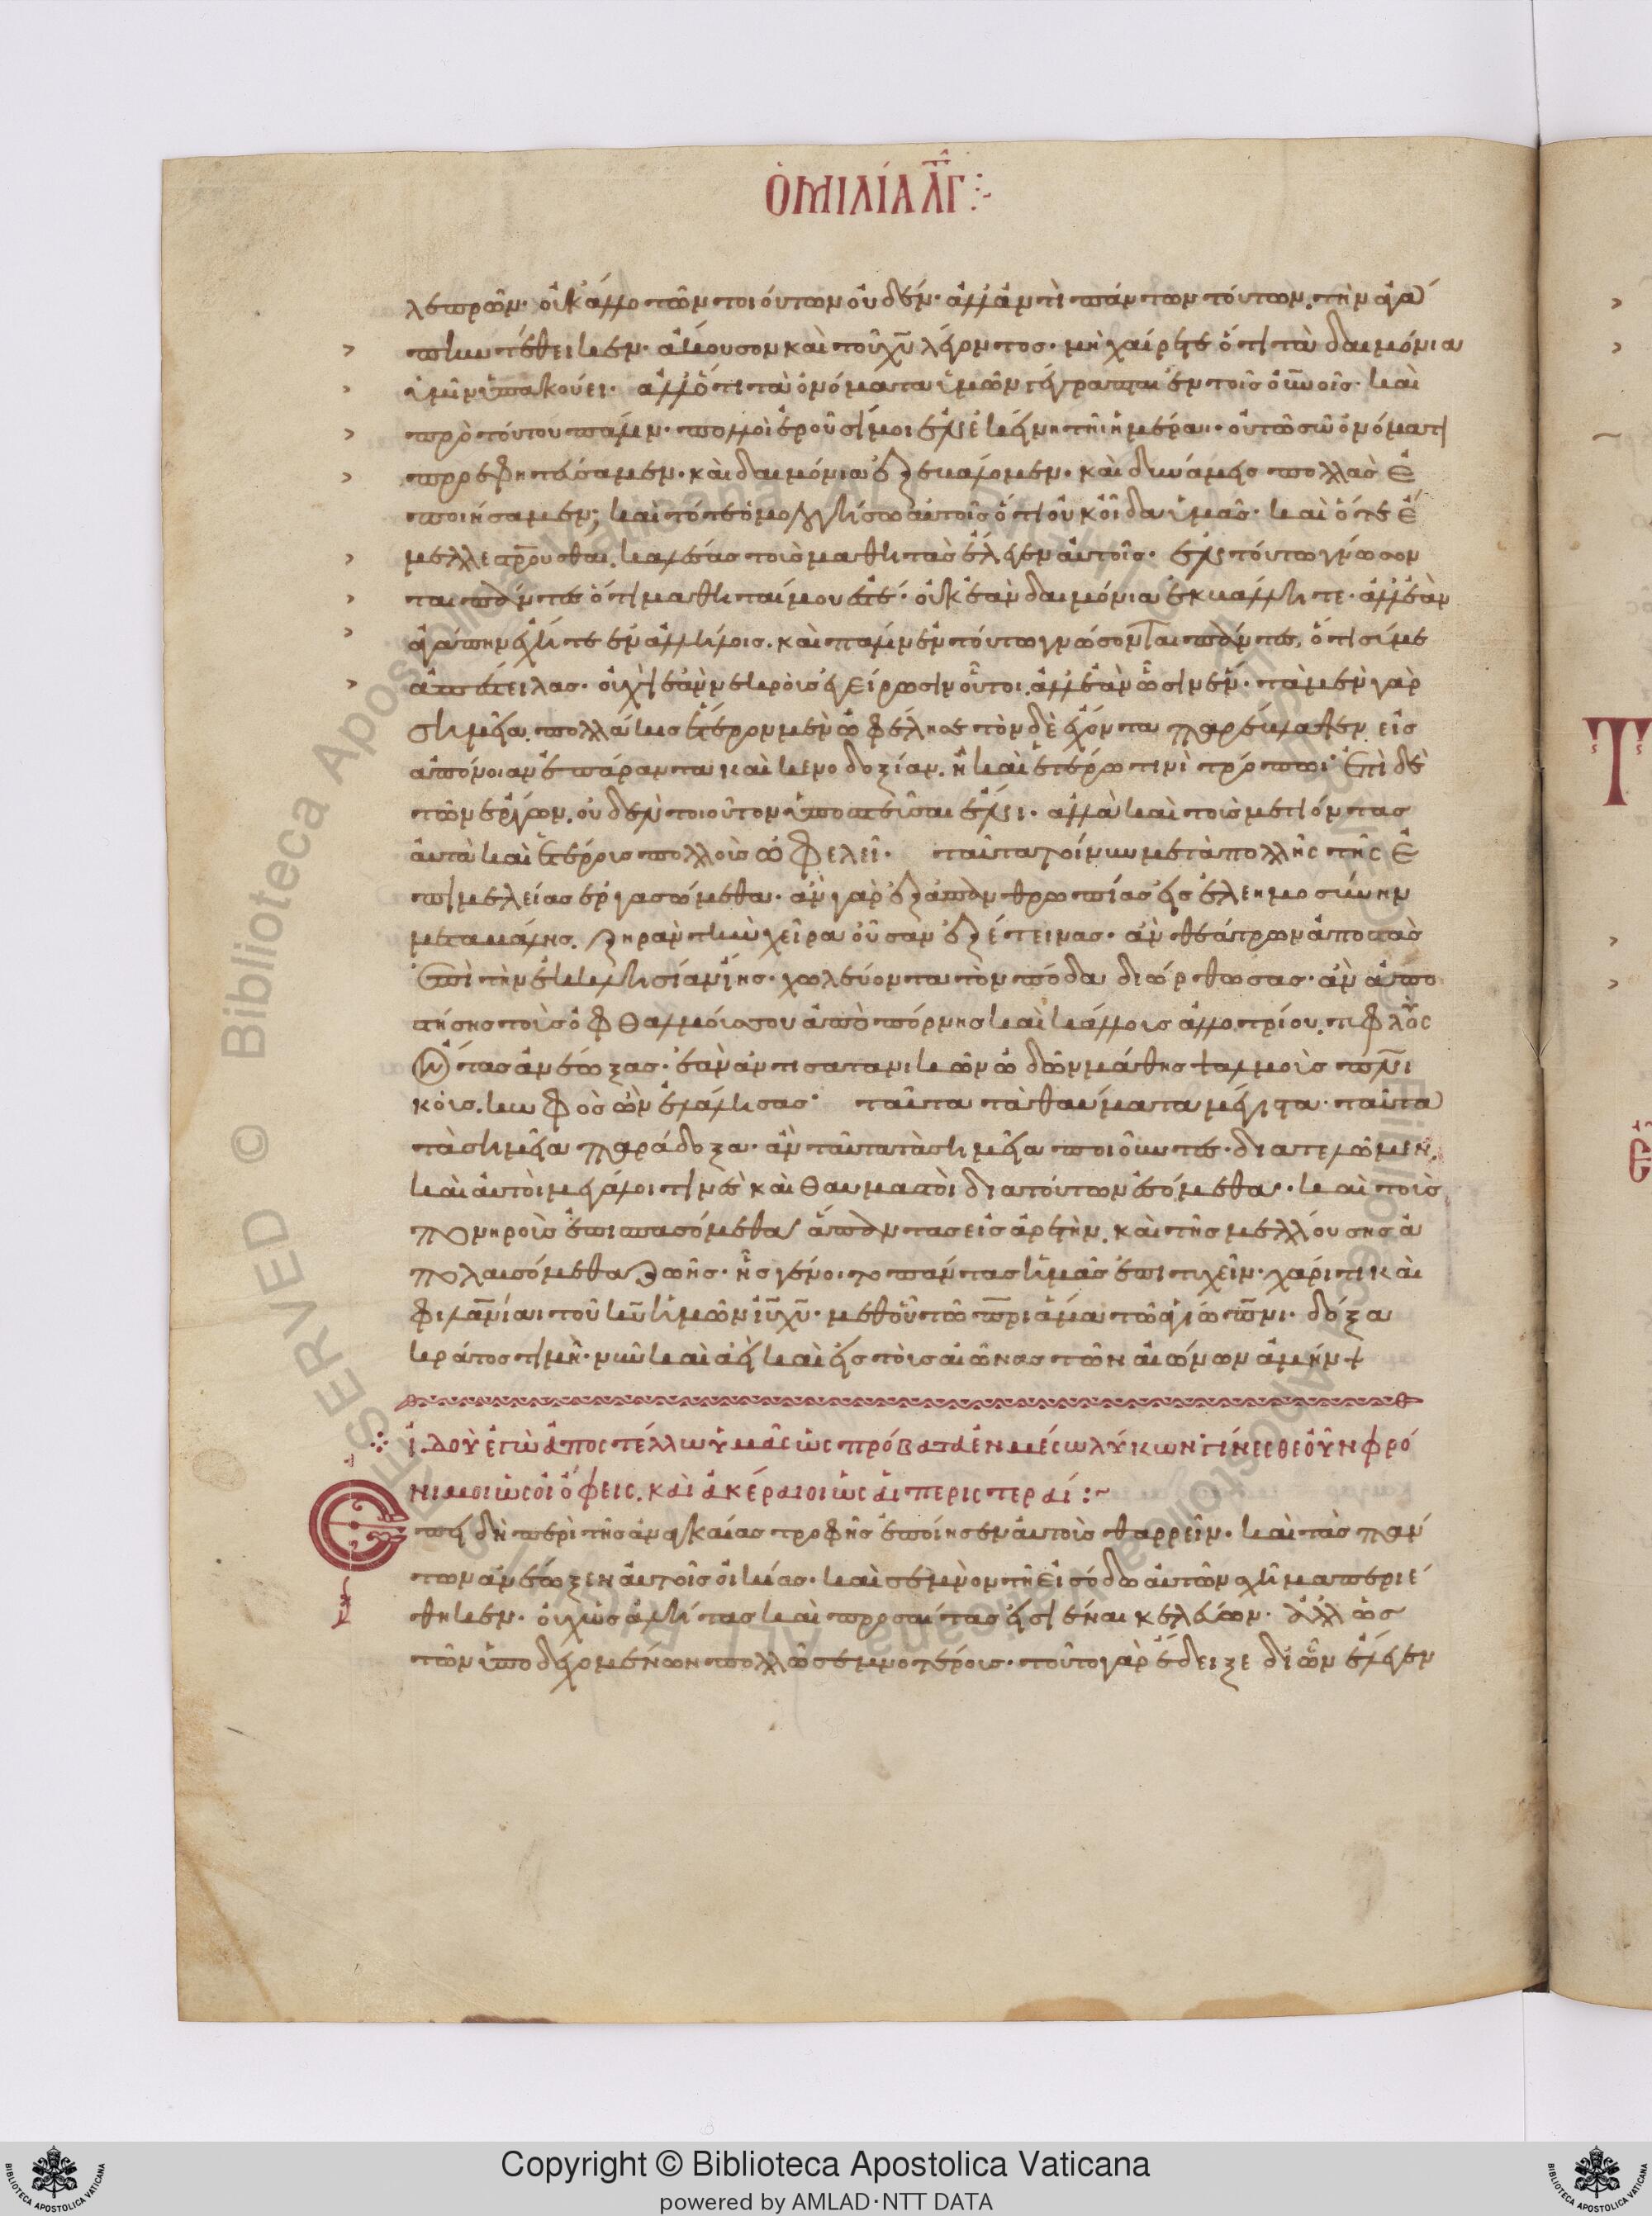 ὉΜΙΛΊΑ ΛΓ
λεπρῶν· οὐκ ἄλλο τῶν τοιούτων οὐδέν· ἀλλ' ἀντὶ πάντων τούτων, τὴν ἀγά
πην τέθεικεν. ἄκουσον καὶ τοῦ χυ λέγοντος· μὴ χαίρετε ὅτι τὰ δαιμόνια
ὑμῖν ὑπακούει· ἀλλ' ὅτι τὰ ὀνόματα ὑμῶν γέγραπται ἐν τοῖς οὐνοῖς· καὶ
πρὸ τούτου πάλιν· πολλοὶ ἐροῦσί μοι ἐν ἐκείνη τῆι ἡμέραι· οὐ τῶ σῶ ὀνόματι
προεφητεύσαμεν· καὶ δαιμόνια ἐξεβάλομεν· καὶ δυνάμεις πολλὰς ἐ
ποιήσαμεν; καὶ τότε ὁμολογήσω αὐτοῖς ὅτι οὐκ οἶδα ὑμᾶς· καὶ ὅτε ἔ
μελλε σρουσθαι, καλέσας τοὺς μαθητὰς ἔλεγεν αὐτοῖς· ἐν τούτω γνώσον
ται πάντες ὅτι μαθηταί μου ἐστέ· οὐκ ἐὰν δαιμόνια ἐκβάλλητε· ἀλλ' ἐὰν
ἀγάπην ἔχητε ἐν ἀλλήλοις. καὶ πάλιν ἐν τούτω γνώσονται πάντες, ὅτι σύ με
ἀπέστειλας· οὐχὶ ἐὰν νεκροὺς ἐγείρωσιν οὗτοι, ἀλλ' ἐὰν ὦσιν ἕν· τὰ μὲν γὰρ
σημεῖα, πολλάκις ἕτερον μὲν ὠφέλησε τὸν δὲ ἔχοντα παρέβλαψεν εἰς
ἀπόνοιαν ἐπάραντα καὶ κενοδοξίαν. ἢ καὶ ἑτέρω τινὶ τρόπωι· ἐπὶ δὲ
τῶν ἔργων, οὐδὲν τοιοῦτον ὑποπτεῦσαι ἔχει· ἀλλὰ καὶ τοὺς μετιόντας
αὐτὰ καὶ ἑτέρους πολλοὺς ὠφελεῖ· ταῦτα τοίνυν μετὰ πολλῆς τῆς ἐ
πιμελείας ἐργασώμεθα· ἂν γὰρ ἐξ ἀπανθρωπίας εἰς ἐλεημοσύνην
μεταβάλης, ξηρὰν τὴν χεῖρα οὖσαν ἐξέτεινας· ἂν θεάτρων ἀποστὰς
ἐπὶ τὴν ἐκκλησίαν ἴης· χωλεύοντα τὸν πόδα διώρθωσας· ἂν ἀπο
στήσης τοὺς ὀφθαλμούς σου ἀπὸ πόρνης καὶ κάλλους ἀλλοτρίου, τυφλοὺς
ὄντας ἀνέωξας· ἐὰν ἀντὶ σατανικῶν ὠδῶν μάθης ψαλμοὺς πνι
κούς, κωφὸς ὢν ἐλάλησας· ταῦτα τὰ θαύματα μέγιστα· ταῦτα
τὰ σημεῖα παράδοξα· ἂν ταῦτα τὰ σημεῖα ποιοῦντες· διατελῶμεν,
καὶ αὐτοὶ μεγάλοι τινὲς καὶ θαυμαστοὶ διὰ τούτων ἐσόμεθα· καὶ τοὺς
πονηροὺς ἐπισπασόμεθα ἅπαντας εἰς ἀρετὴν, καὶ τῆς μελλούσης ἀ
πολαυσόμεθα ζωῆς· ἧς γένοιτο πάντας ἡμᾶς ἐπιτυχεῖν· χάριτι καὶ
φιλανίαι τοῦ κυ ἡμῶν ιυ χυ· μεθ' οὗ τῶ πρι ἅμα τῶ ἁγίω πνι· δόξα
κράτος τιμὴ· νῦν καὶ ἀεὶ καὶ εἰς τοὺς αἰῶνας τῶν αἰώνων ἀμήν+
ἰδοὺ ἐγὼ ἀποστέλλω ὑμᾶς ὡς πρόβατα ἐν μέσω λύκων· γίνεσθε οὖν φρό
νιμοι ὡς οἱ ὄφεις, καὶ ἀκέραιοι ὡς αἱ περιστεραί:~
Ἐπειδὴ περὶ τῆς ἀναγκαίας τροφῆς ἐποίησεν αὐτοὺς θαρρεῖν· καὶ τὰς πάν
των ἀνέωξεν αὐτοῖς οἰκίας· καὶ σεμνὸν τῆ εἰσόδω αὐτῶν σχῆμα περιέ
θηκεν· οὐχ ὡς ἀλήτας καὶ προσαίτας εἰσιέναι κελεύων· ἀλλ' ὡς
τῶν ὑποδεχομένων πολλῶ σεμνοτέρους· τοῦτο γὰρ ἔδειξε δι' ὧν ἔλεγεν
Copyright © Biblioteca Apostolica Vaticana
powered by AMLAD·NTT DATA